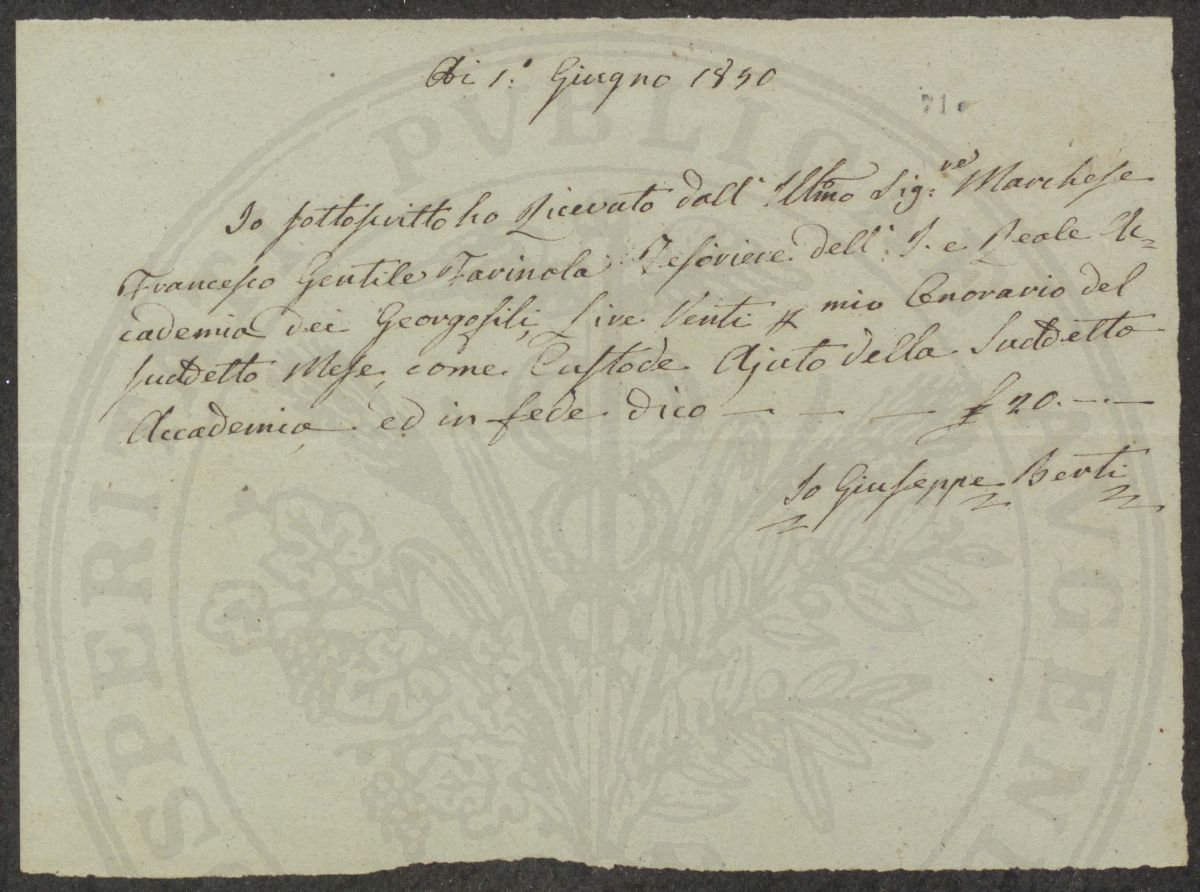 Adi 1.° Giugno 1850
71
Io sottoscritto ho Ricevuto dall' Illmo Sig.re Marchese
Francesco Gentile Farinola Tesoriere dell' I. e Reale Ac=
cademia dei Georgofili, Lire Venti p mio Onorario del
suddetto Mese, come Custode Ajuto della Suddetto
Accademia ed in fede dico — — — — £ 20. — —
Io Giuseppe Berti
PVBLICAE
PROSPERITATIS
AVGENDAE